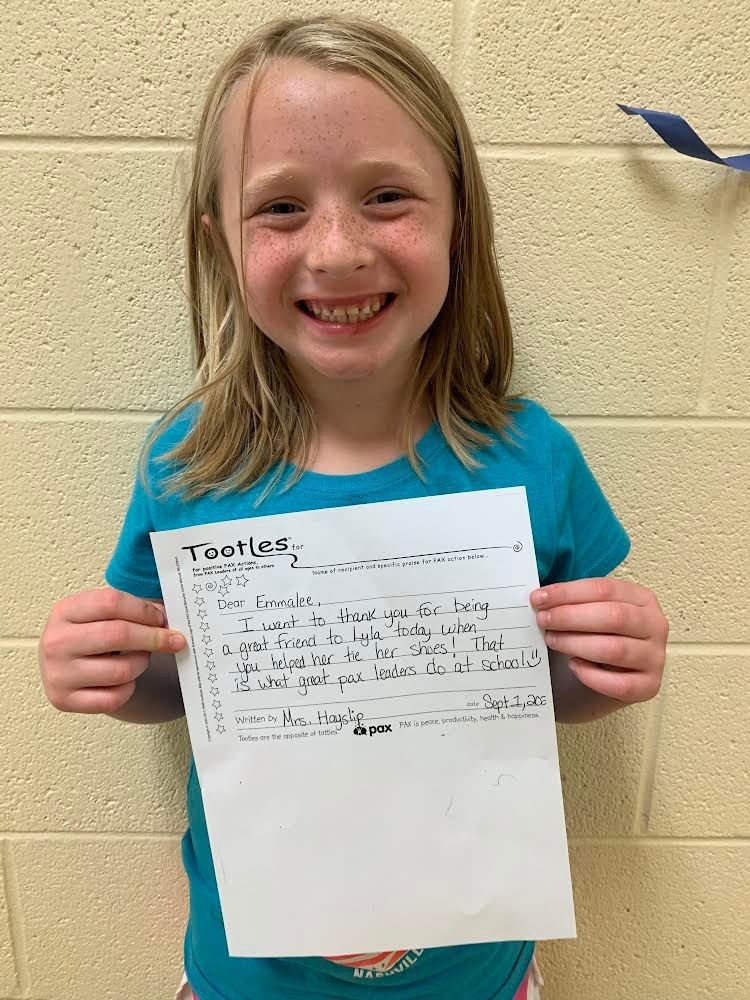 Tootles™ for
for positive PAX Actions,
from PAX Leaders of all ages to others
Name of recipient and specific praise for PAX action below...
Dear Emmalee,
I want to thank you for being
a great friend to Lyla today when
you helped her tie her shoes! That
is what great pax leaders do at school!
Written by Mrs. Hayslip
date Sept 1, 202
Tootles are the opposite of tattles.
pax
PAX is peace, productivity, health & happiness.
NASHVILL